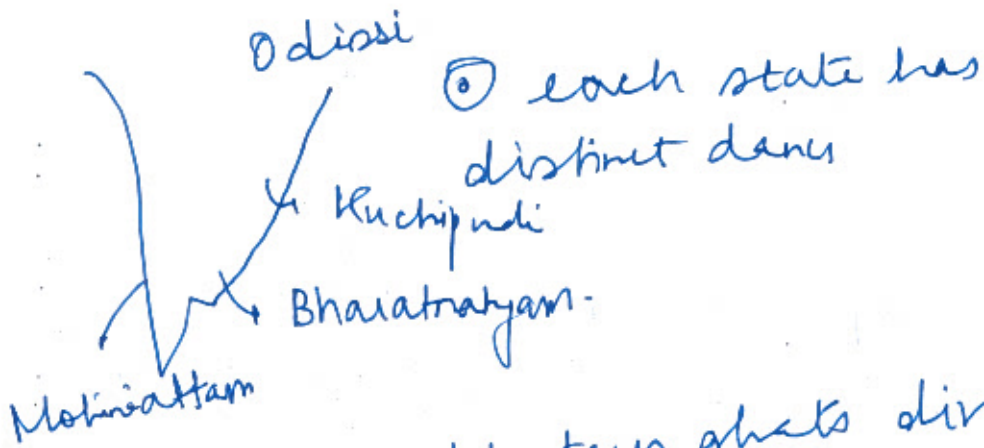 Odissi
each state has
distinct dances
Kuchipudi
Bharatnatyam.
Mohiniattam
ghats div